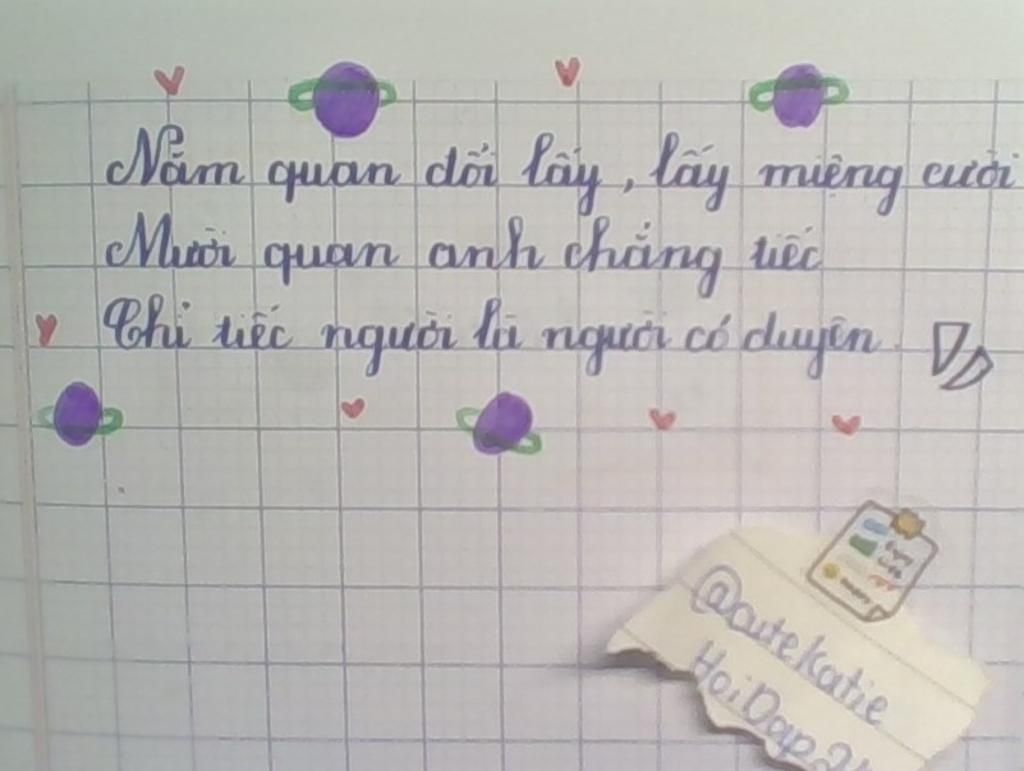 Năm quan đổi lấy, lấy miệng cười
Mười quan anh chẳng tiếc
Chỉ tiếc người là người có duyên.
@cutekatie
HoiDap